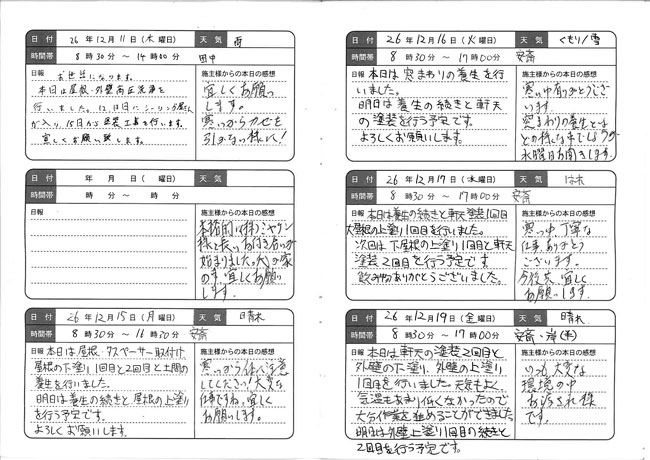 日付 26年12月11日(木曜日) 天気 雨
時間帯 8時30分～14時00分 田中
日報 お世話になります。
本日は屋根・外壁高圧洗浄を
行いました。12,13日にシーリング屋さん
が入り、15日から塗装工事を行います。
宜しくお願い致します。
施主様からの本日の感想
宜しくお願い
します。
寒いからカゼを
引かない様に!
日付 年 月 日( 曜日) 天気
時間帯 時 分～ 時 分
日報
施主様からの本日の感想
本格的に(株)ミヤケン
様と長いお付き合いが
始まりました。我の家
の事、宜しくお願い
します。
日付 26年12月15日(月曜日) 天気 晴れ
時間帯 8時30分～16時30分 安斎
日報 本日は屋根・タスペーサー取付け、
屋根の下塗り1回目と2回目と土間の
養生を行いました。
明日は養生の続きと屋根の上塗り
を行う予定です。
よろしくお願いします。
施主様からの本日の感想
寒いから体に注意
してください!大変な
仕事ですね。宜しく
お願いします。
日付 26年12月16日(火曜日) 天気 くもり/雪
時間帯 8時30分～17時00分 安斎
日報 本日は窓まわりの養生を行
いました。
明日は養生の続きと軒天
の塗装を行う予定です。
よろしくお願いします。
施主様からの本日の感想
寒い中有りがとうござい
ます。
窓まわりの養生とは
どの様な事でしょうか
水曜日お聞きします。
日付 26年12月17日(水曜日) 天気 はれ
時間帯 8時30分～17時00分 安斎
日報 本日は養生の続きと軒天塗装1回目
大屋根の上塗り1回目を行いました。
次回は下屋根の上塗り1回目と軒天
塗装2回目を行う予定です。
飲み物ありがとうございました。
施主様からの本日の感想
寒い中、丁寧な
仕事、ありがとう
ございます。
今後共、宜しく
お願いします。
日付 26年12月19日(金曜日) 天気 晴れ
時間帯 8時30分～17時00分 安斎・岸(幸)
日報 本日は軒天の塗装2回目と
外壁の下塗り、外壁の上塗り
1回目を行いました。天気もよく、
気温もあまり低くなかったので
大分作業を進めることができました。
明日は外壁上塗り1回目の続きと
2回目を行う予定です。
施主様からの本日の感想
いつも大変な
環境の中
お疲れ様
です。